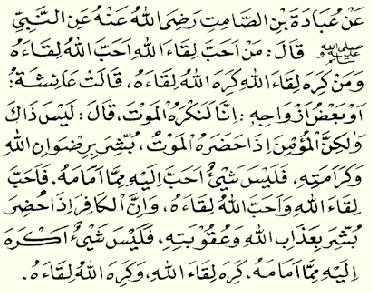 عَنْ عُبَادَةَ بْنِ الصَّامِتِ رَضِىَ اللّٰهُ عَنْهُ عَنِ النَّبِيِّ
ﷺ قَالَ: مَنْ اَحَبَّ لِقَاءَ اللّٰهِ اَحَبَّ اللّٰهُ لِقَاءَهُ
وَمَنْ كَرِهَ لِقَاءَ اللّٰهِ كَرِهَ اللّٰهُ لِقَاءَهُ، قَالَتْ عَائِشَةُ:
اَوْ بَعْضُ اَزْوَاجِهِ: اِنَّا لَنَكْرَهُ الْمَوْتَ، قَالَ: لَيْسَ ذَاكَ
وَلٰكِنَّ الْمُؤْمِنَ اِذَا حَضَرَهُ الْمَوْتُ، بُشِّرَ بِرِضْوَانِ اللّٰهِ
وَكَرَامَتِهِ، فَلَيْسَ شَيْئٌ اَحَبَّ اِلَيْهِ مِمَّا اَمَامَهُ، فَاَحَبَّ
لِقَاءَ اللّٰهِ وَاَحَبَّ اللّٰهُ لِقَاءَهُ، وَاِنَّ الْكَافِرَ اِذَا حُضِرَ
بُشِّرَ بِعَذَابِ اللّٰهِ وَعُقُوبَتِهِ، فَلَيْسَ شَيْئٌ اَكْرَهَ
اِلَيْهِ مِمَّا اَمَامَهُ، كَرِهَ لِقَاءَ اللّٰهِ، وَكَرِهَ اللّٰهُ لِقَاءَهُ.